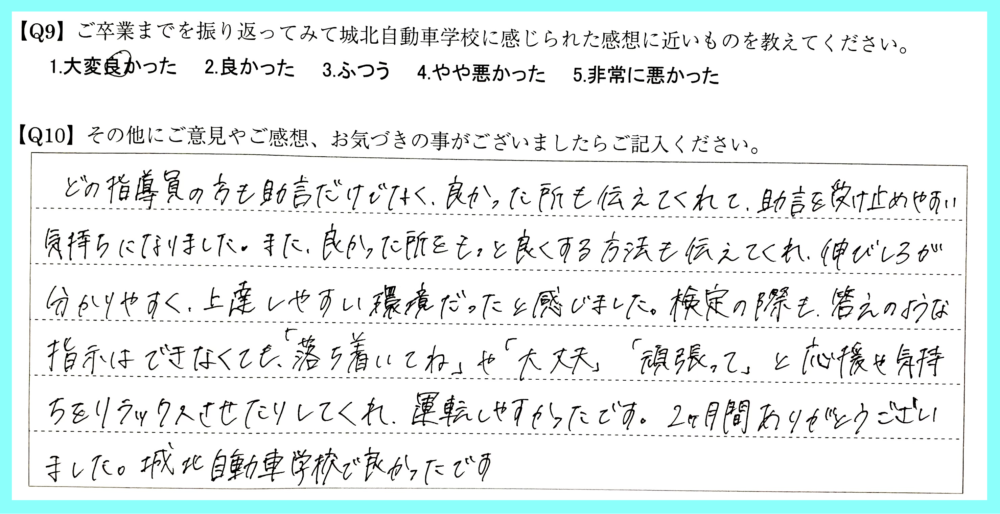 【Q9】ご卒業までを振り返ってみて城北自動車学校に感じられた感想に近いものを教えてください。
1.大変良かった 2.良かった 3.ふつう 4.やや悪かった 5.非常に悪かった
【Q10】その他にご意見やご感想、お気づきの事がございましたらご記入ください。
どの指導員の方も助言だけでなく、良かった所も伝えてくれて、助言を受け止めやすい
気持ちになりました。また、良かった所をもっと良くする方法も伝えてくれ、伸びしろが
分かりやすく、上達しやすい環境だったと感じました。検定の際も、答えのような
指示はできなくても、「落ち着いてね」や「大丈夫」「頑張って」と応援や気持
ちをリラックスさせたりしてくれ、運転しやすかったです。2ヶ月間ありがとうござい
ました。城北自動車学校で良かったです